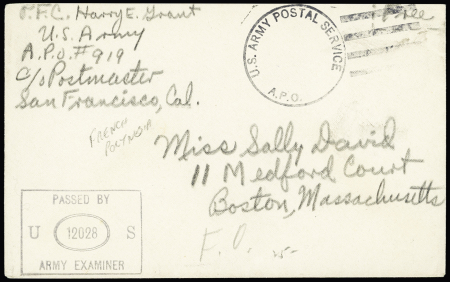 P.F.C. Harry E. Grant
U.S. Army
A.P.O. #919
c/o Postmaster
San Francisco, Cal.
FRENCH
POLYNESIA
U.S. ARMY POSTAL SERVICE
A.P.O.
Free
Miss Sally David
11 Medford Court
Boston, Massachusetts
PASSED BY
U 12028 S
ARMY EXAMINER